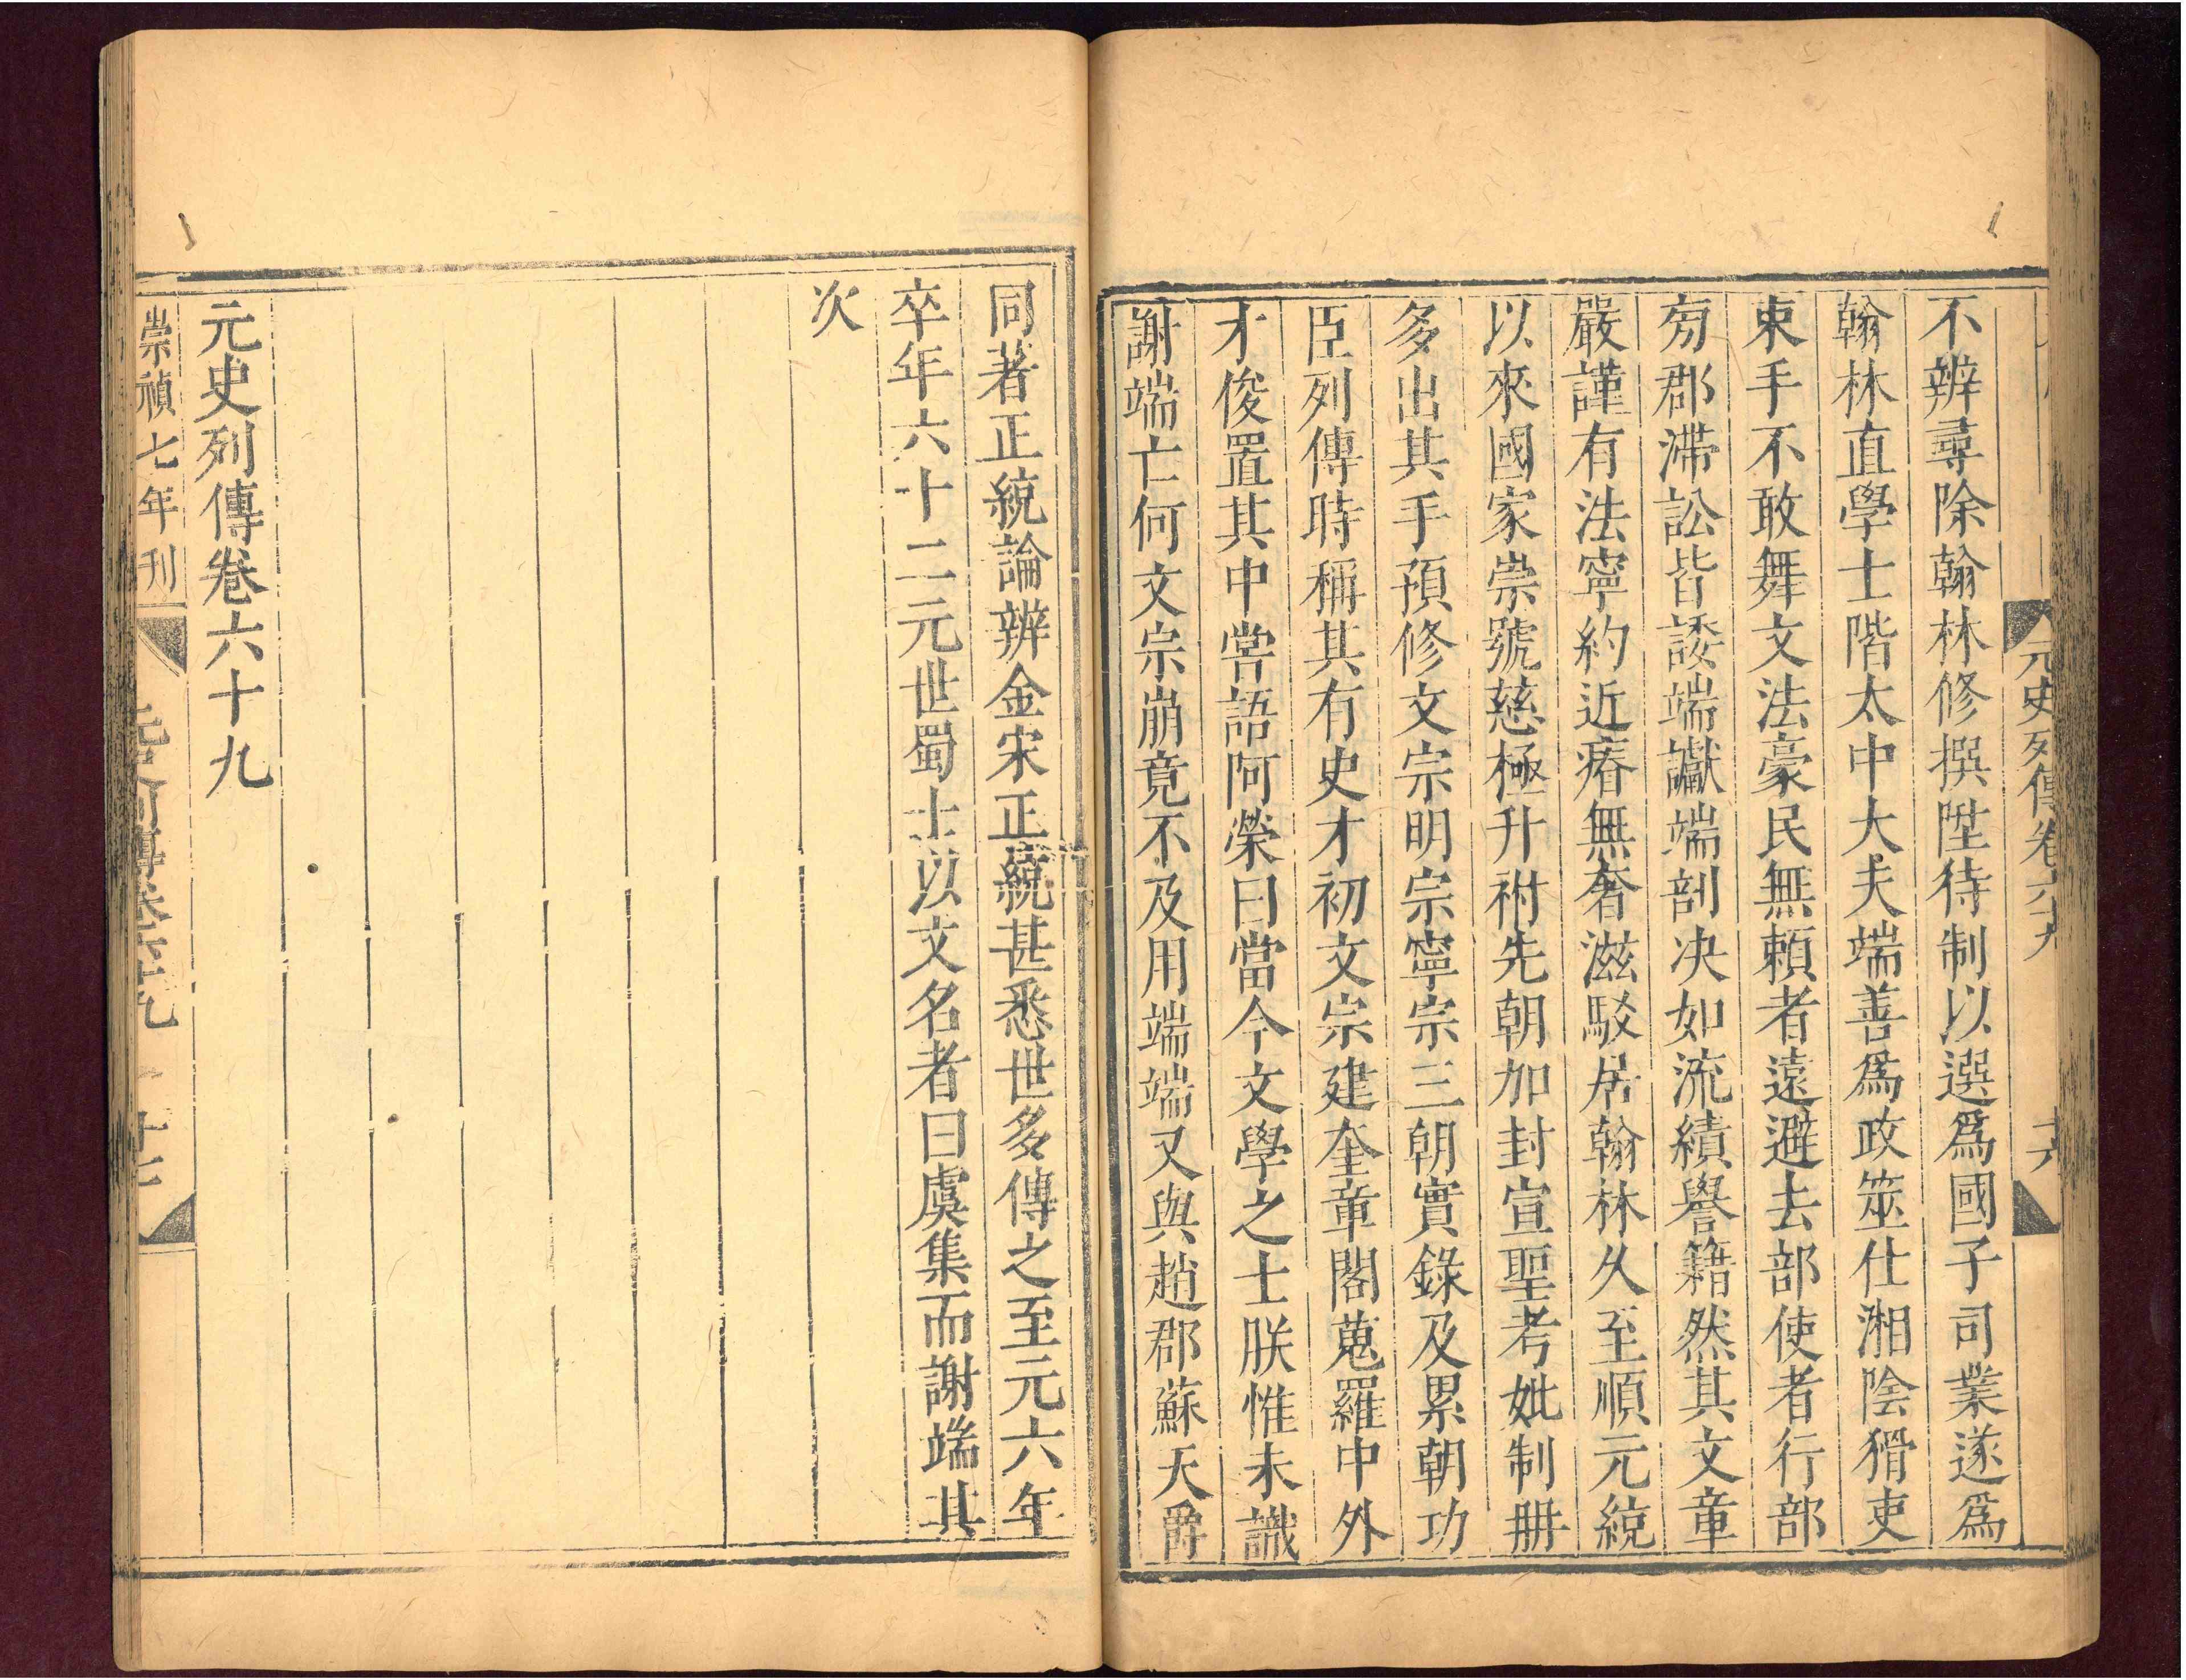 元史列傳卷六十九
十六
不辨尋除翰林修撰陞待制以選爲國子司業遂爲
翰林直學士階太中大夫端善爲政筮仕湘陰猾吏
束手不敢舞文法豪民無賴者遠避去部使者行部
旁郡滯訟皆諉端讞端剖决如流績譽籍然其文章
嚴謹有法寧約近瘠無奢滋駁居翰林久至順元統
以來國家崇號慈極升祔先朝加封宣聖考妣制册
多出其手預修文宗明宗寧宗三朝實錄及累朝功
臣列傳時稱其有史才初文宗建奎章閣蒐羅中外
才俊置其中嘗語阿榮曰當今文學之士朕惟未識
謝端亡何文宗崩竟不及用端端又與趙郡蘇天爵
同著正統論辨金宋正統甚悉世多傳之至元六年
卒年六十二元世蜀士以文名者曰虞集而謝端其
次
元史列傳卷六十九
崇禎七年刊
元史列傳卷六十九